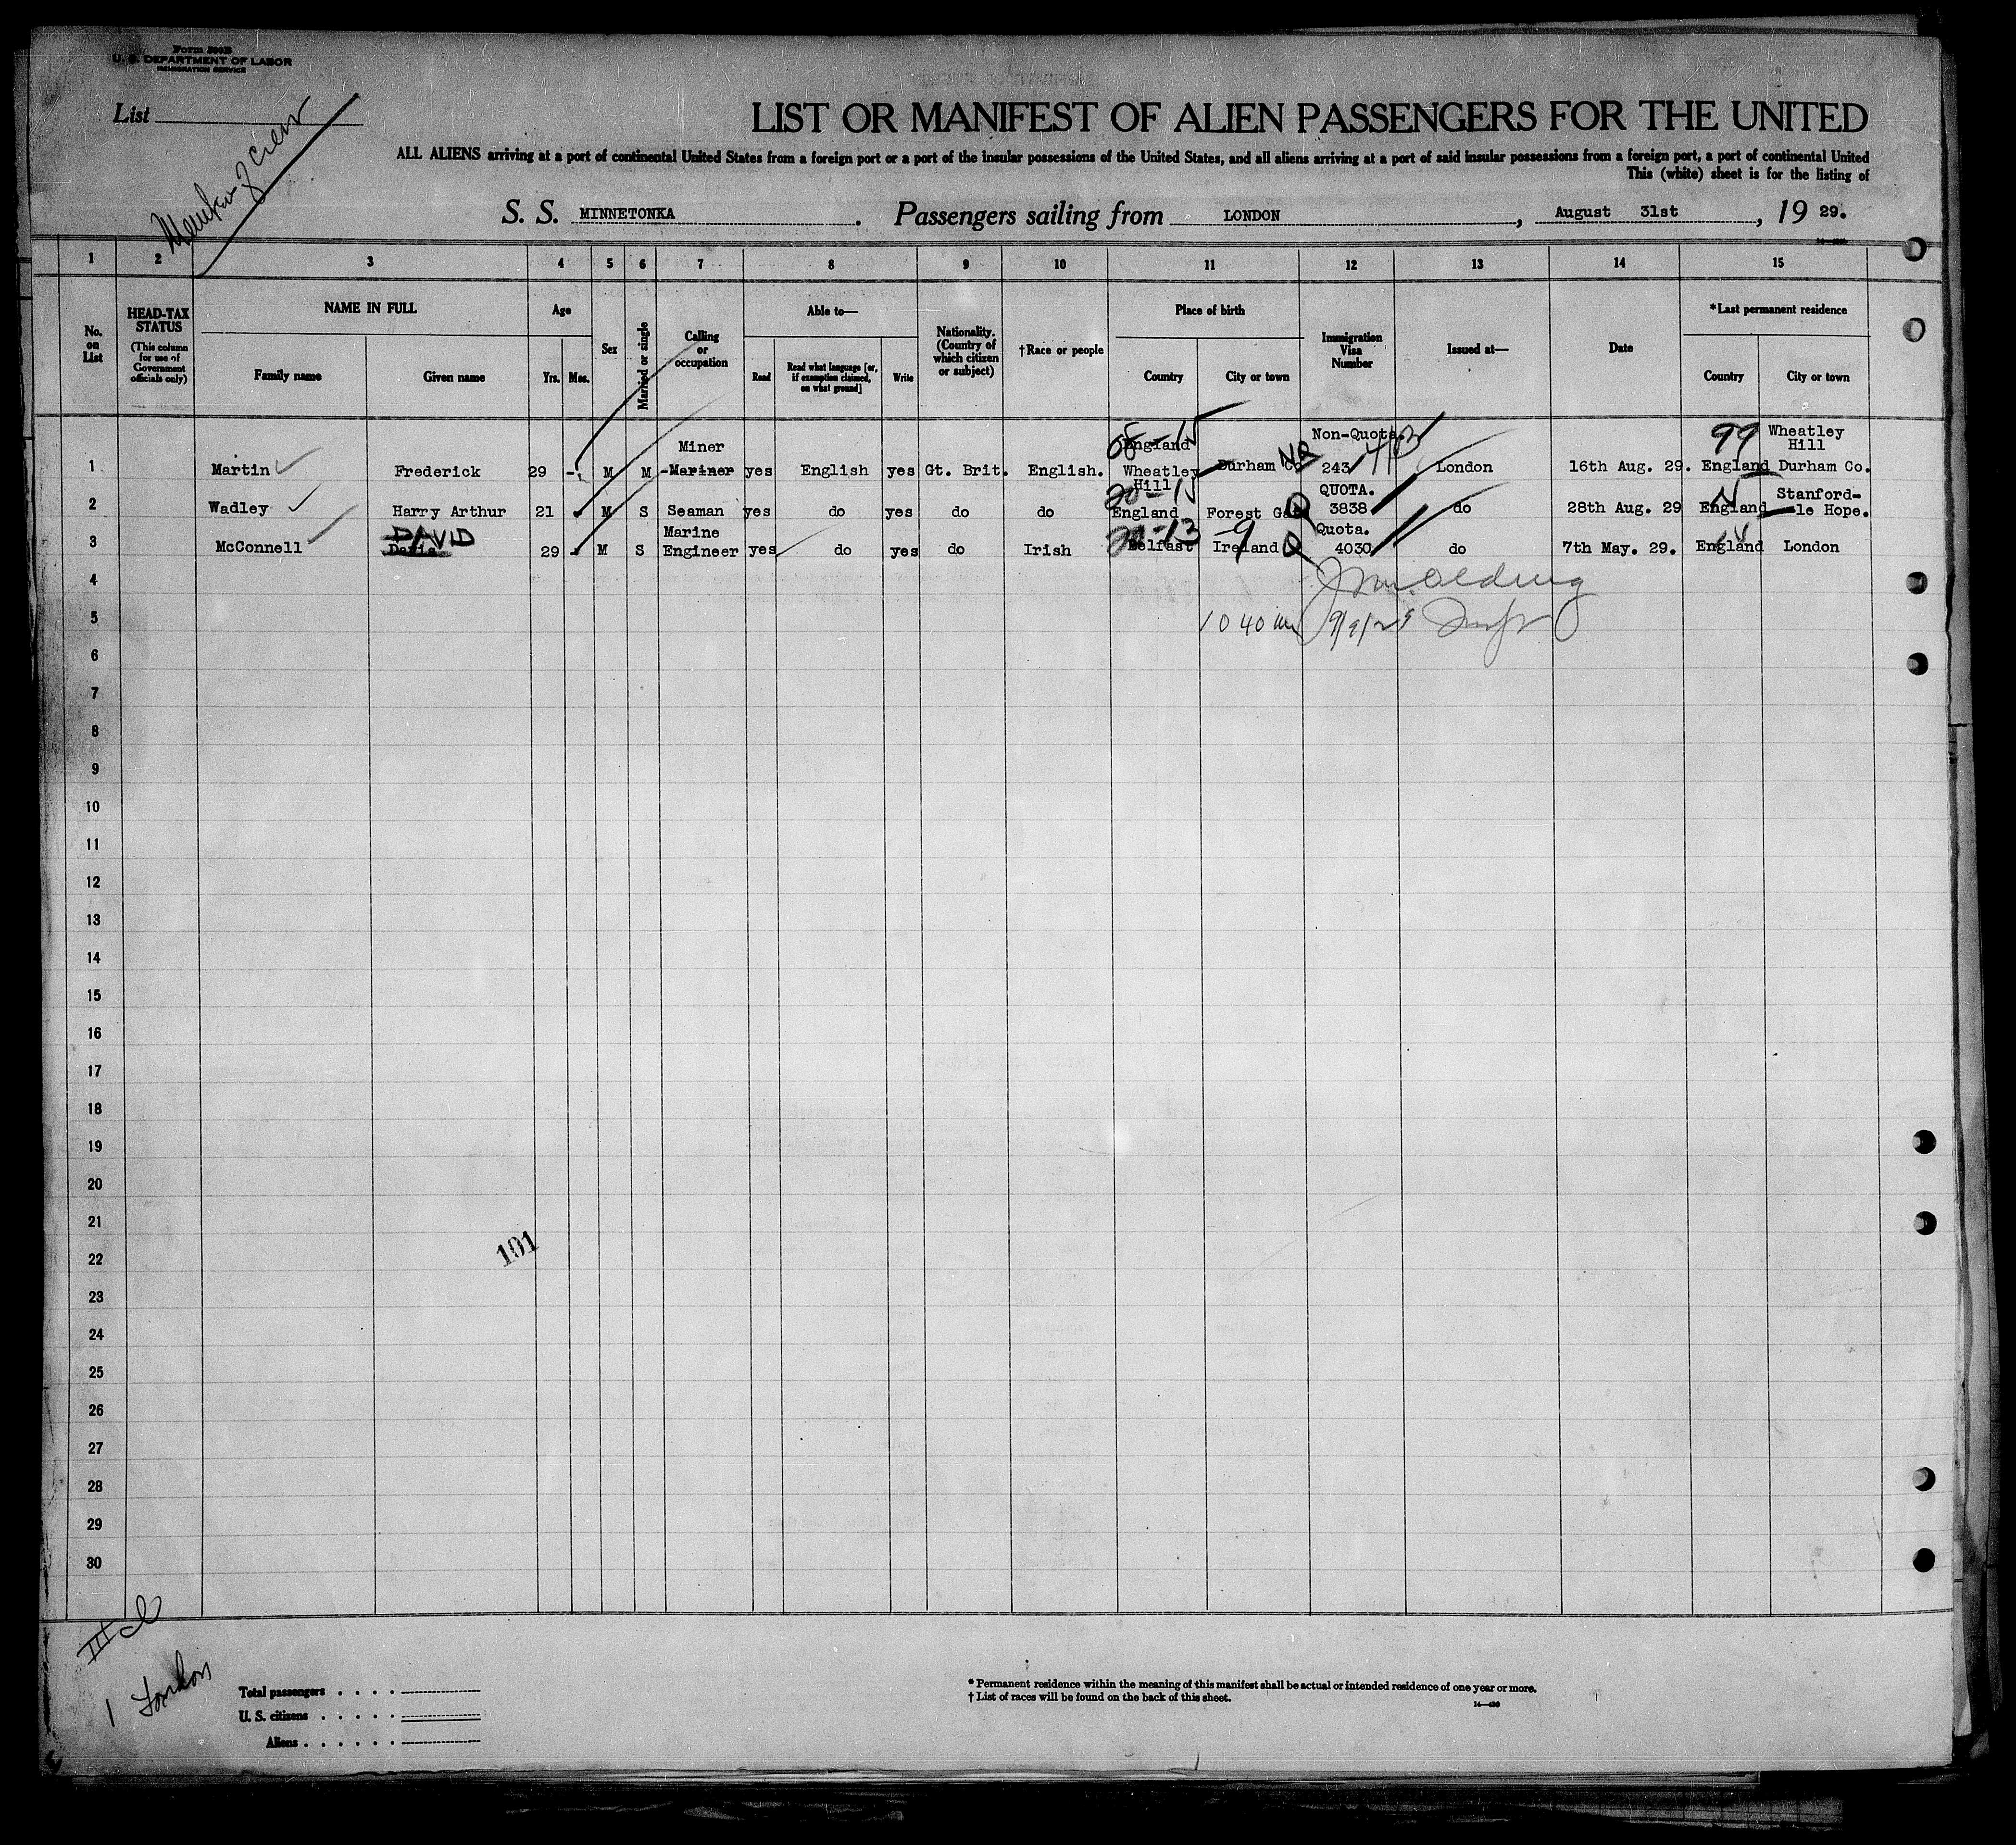 Form 500B
U. S. DEPARTMENT OF LABOR
IMMIGRATION SERVICE
List
LIST OR MANIFEST OF ALIEN PASSENGERS FOR THE UNITED
ALL ALIENS arriving at a port of continental United States from a foreign port or a port of the insular possessions of the United States, and all aliens arriving at a port of said insular possessions from a foreign port, a port of continental United
This (white) sheet is for the listing of
S. S. MINNETONKA. Passengers sailing from LONDON, August 31st, 19 29.
1 2 3 4 5 6 7 8 9 10 11 12 13 14 15
No. on List
HEAD-TAX STATUS
(This column for use of Government officials only)
NAME IN FULL
Family name
Given name
Age
Yrs. Mos.
Sex
Married or single
Calling or occupation
Able to—
Read
Read what language [or, if exemption claimed, on what ground]
Write
Nationality. (Country of which citizen or subject)
†Race or people
Place of birth
Country
City or town
Immigration Visa Number
Issued at—
Date
*Last permanent residence
Country
City or town
1 Martin Frederick 29 - M M Miner Mariner yes English yes Gt. Brit. English. England Wheatley Hill Durham Co. Non-Quota. 243 London 16th Aug. 29. England Wheatley Hill Durham Co.
08-15 NQ 4(B) 99
2 Wadley Harry Arthur 21 M S Seaman yes do yes do do England Forest Gate QUOTA. 3838 do 28th Aug. 29 England Stanford-le Hope.
20-15 Q
3 McConnell DAVID 29 M S Marine Engineer yes do yes do Irish Belfast Ireland Quota. 4030 do 7th May. 29. England London
-13 -9 Q
4
5 10 40 am 9/9/29
6
7
8
9
10
11
12
13
14
15
16
17
18
19
20
21
101
22
23
24
25
26
27
28
29
30
III cl
1 London
Total passengers
U. S. citizens
Aliens
*Permanent residence within the meaning of this manifest shall be actual or intended residence of one year or more.
†List of races will be found on the back of this sheet.